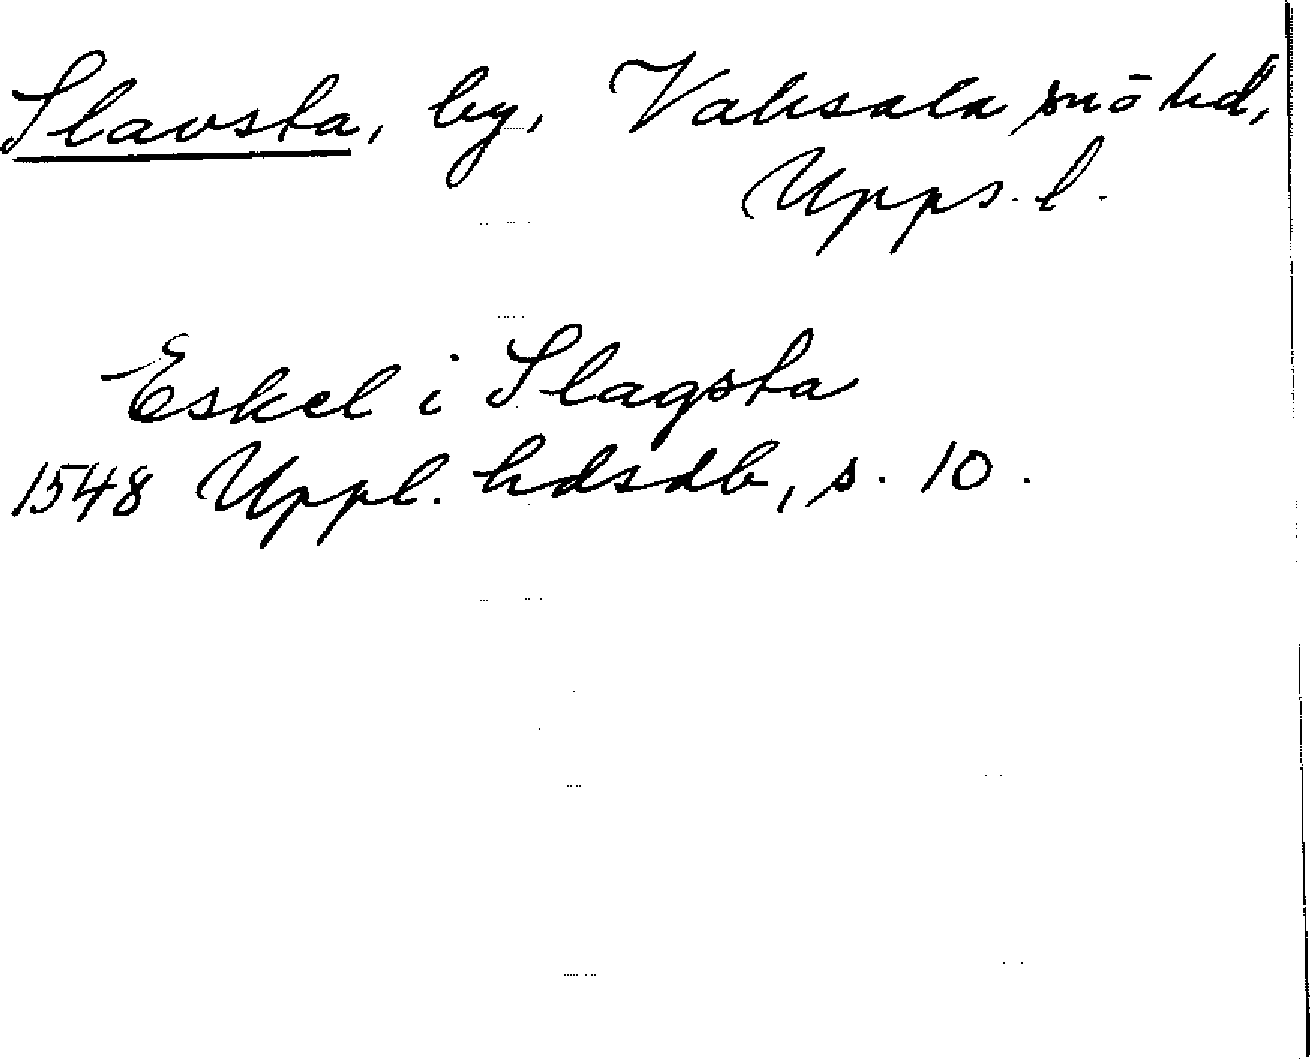 Slavsta, by, Vaksala sn ō hd,
Upps. l.
Eskel i Slagsta
1548 Uppl. hdsdb, s. 10.